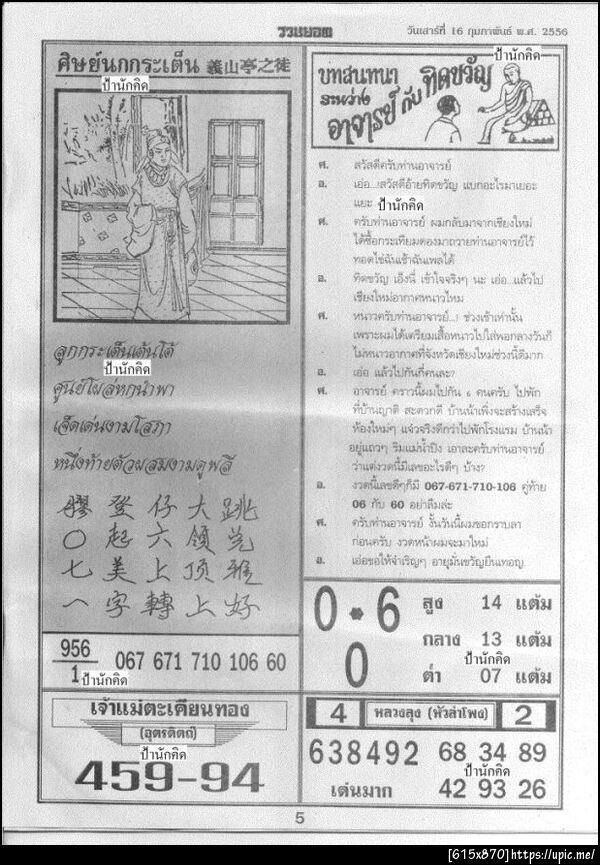 รวมยอด
วันเสาร์ที่ 16 กุมภาพันธ์ พ.ศ. 2556
ศิษย์นกกระเต็น 義山亭之徒
ป้านักคิด
ลูกกระเต็นเต้นโด้
ป้านักคิด
ศูนย์โผล่หกนำพา
เจ็ดเด่นงามโสภา
หนึ่งท้ายตัวผสมงามดูพลี
膠 登 仔 大 跳
〇 起 六 領 兇
七 美 上 頂 雅
一 字 轉 上 好
956
1
067 671 710 106 60
ป้านักคิด
เจ้าแม่ตะเคียนทอง
(อุตรดิตถ์)
ป้านักคิด
459-94
ป้านักคิด
บทสนทนา
ระหว่าง
อาจารย์ กับ ทิดขวัญ
ศ. สวัสดีครับท่านอาจารย์
อ. เอ่อ...!สวัสดีอ้ายทิดขวัญ แบกอะไรมาเยอะ
แยะ ป้านักคิด
ศ. ครับท่านอาจารย์ ผมกลับมาจากเชียงใหม่
ได้ซื้อกระเทียมดองมาถวายท่านอาจารย์ไว้
ทอดไข่ฉันเช้าฉันเพลได้
อ. ทิดขวัญ เอ็งนี่ เข้าใจจริงๆ นะ เอ่อ...แล้วไป
เชียงใหม่อากาศหนาวไหม
ศ. หนาวครับท่านอาจารย์...! ช่วงเช้าเท่านั้น
เพราะผมได้เตรียมเสื้อหนาวไปใส่พอกลางวันก็
ไม่หนาวอากาศที่จังหวัดเชียงใหม่ช่วงนี้ดีมาก
อ. เอ่อ แล้วไปกันกี่คนละ?
ศ. อาจารย์ คราวนี้ผมไปกัน ๖ คนครับ ไปพัก
ที่บ้านญาติ สะดวกดี บ้านน้าเพิ่งจะสร้างเสร็จ
ห้องใหม่ๆ แจ๋วจริงดีกว่าไปพักโรงแรม บ้านน้า
อยู่แถวๆ ริมแม่น้ำปิง เอาละครับท่านอาจารย์
ว่าแต่งวดนี้มีเลขอะไรดีๆ บ้าง?
อ. งวดนี้เลขดีๆก็มี 067-671-710-106 คู่ท้าย
06 กับ 60 อย่าลืมล่ะ
ศ. ครับท่านอาจารย์ งั้นวันนี้ผมขอกราบลา
ก่อนครับ งวดหน้าผมจะมาใหม่
อ. เอ่อขอให้จำเริญๆ อายุมั่นขวัญยืนเทอญ
0-6
0
สูง 14 แต้ม
กลาง 13 แต้ม
ป้านักคิด
ต่ำ 07 แต้ม
4 หลวงลุง (หัวลำโพง) 2
638492 68 34 89
ป้านักคิด
เด่นมาก 42 93 26
5
[615x870]https://upic.me/